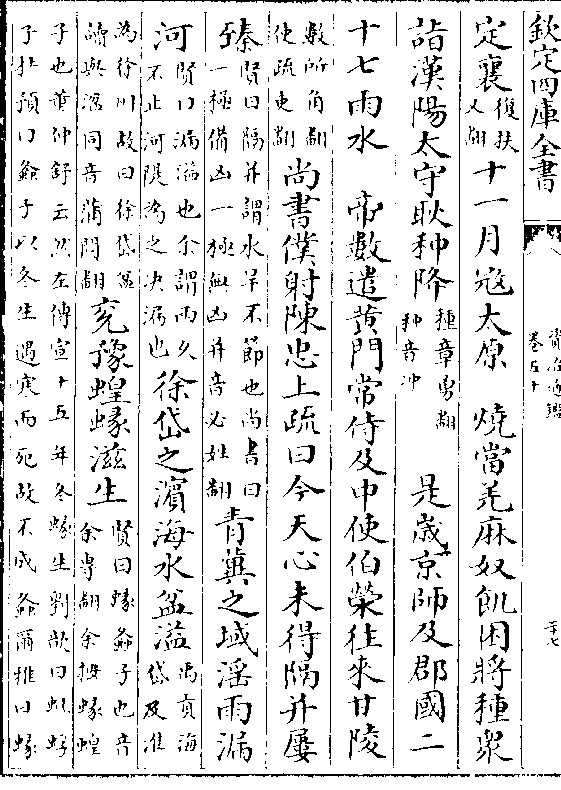 欽定四庫全書
資治通鑑
卷五十
三七
定襄復扶又翻十一月寇太原　燒當羌麻奴飢困將種衆
詣漢陽太守耿种降種章勇翻种音冲　是歲京師及郡國二
十七雨水　帝數遣黄門常侍及中使伯榮往來甘陵
數所角翻使疏吏翻尚書僕射陳忠上疏曰今天心未得隔并屢
臻賢曰隔并謂水旱不節也尚書曰一極備凶一極無凶并音必姓翻青冀之域淫雨漏
河賢曰漏溢也余謂雨久不止河隄為之决漏也徐岱之濱海水盆溢禹貢海岱及淮
為徐州故曰徐岱盆讀與湓同音蒲悶翻兖豫蝗蝝滋生賢曰蝝螽子也音余專翻余按蝝蝗
子也董仲舒云然左傳宣十五年冬蝝生劉歆曰蚍蜉
子杜預曰螽子以冬生遇寒而死故不成螽爾雅曰蝝